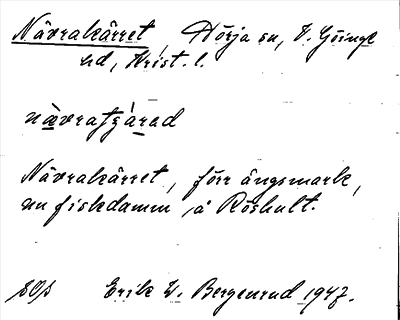 Nävrakärret, Hörja sn, V. Göinge
hd, Krist. l.
nävratzárad
Nävrakärret, förr ängsmark,
nu fiskdamm, å Röshult.
Erik W. Bergenrud 1947.